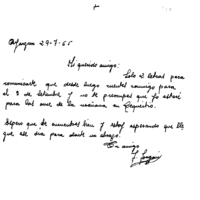 29-7-65
Mi querido amigo:
Solo 2 letras para
comunicarte que desde luego cuentes conmigo para
el 3 de Setiembre y no te preocupes que yo estaré
para las once de la mañana en
Espero que te encuentres bien y estoy esperando que
ese dia para darte un abrazo.
Tu amigo